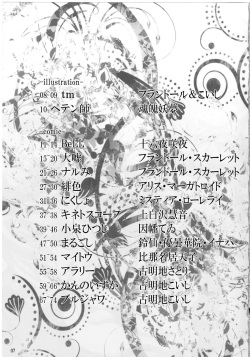 illustration
08-09 tm フランドール&こいし
10 ペテン師 魂魄妖夢
comic
Bell 十六夜咲夜
15-20 大嘘 フランドール・スカーレット
25-26 ナルみ フランドール・スカーレット
27-30 緋色 アリス・マーガトロイド
31-36 にくしょ ミスティア・ローレライ
37-38 キネトスコープ 上白沢慧音
39-46 小泉ひつじ 因幡てゐ
47-50 まるごし 鈴仙・優曇華院・イナバ
51-54 マイトウ 比那名居天子
55-58 アラリー 古明地さとり
59-66 かんのいずか 古明地こいし
67-74 ブルジャワ 古明地こいし
07